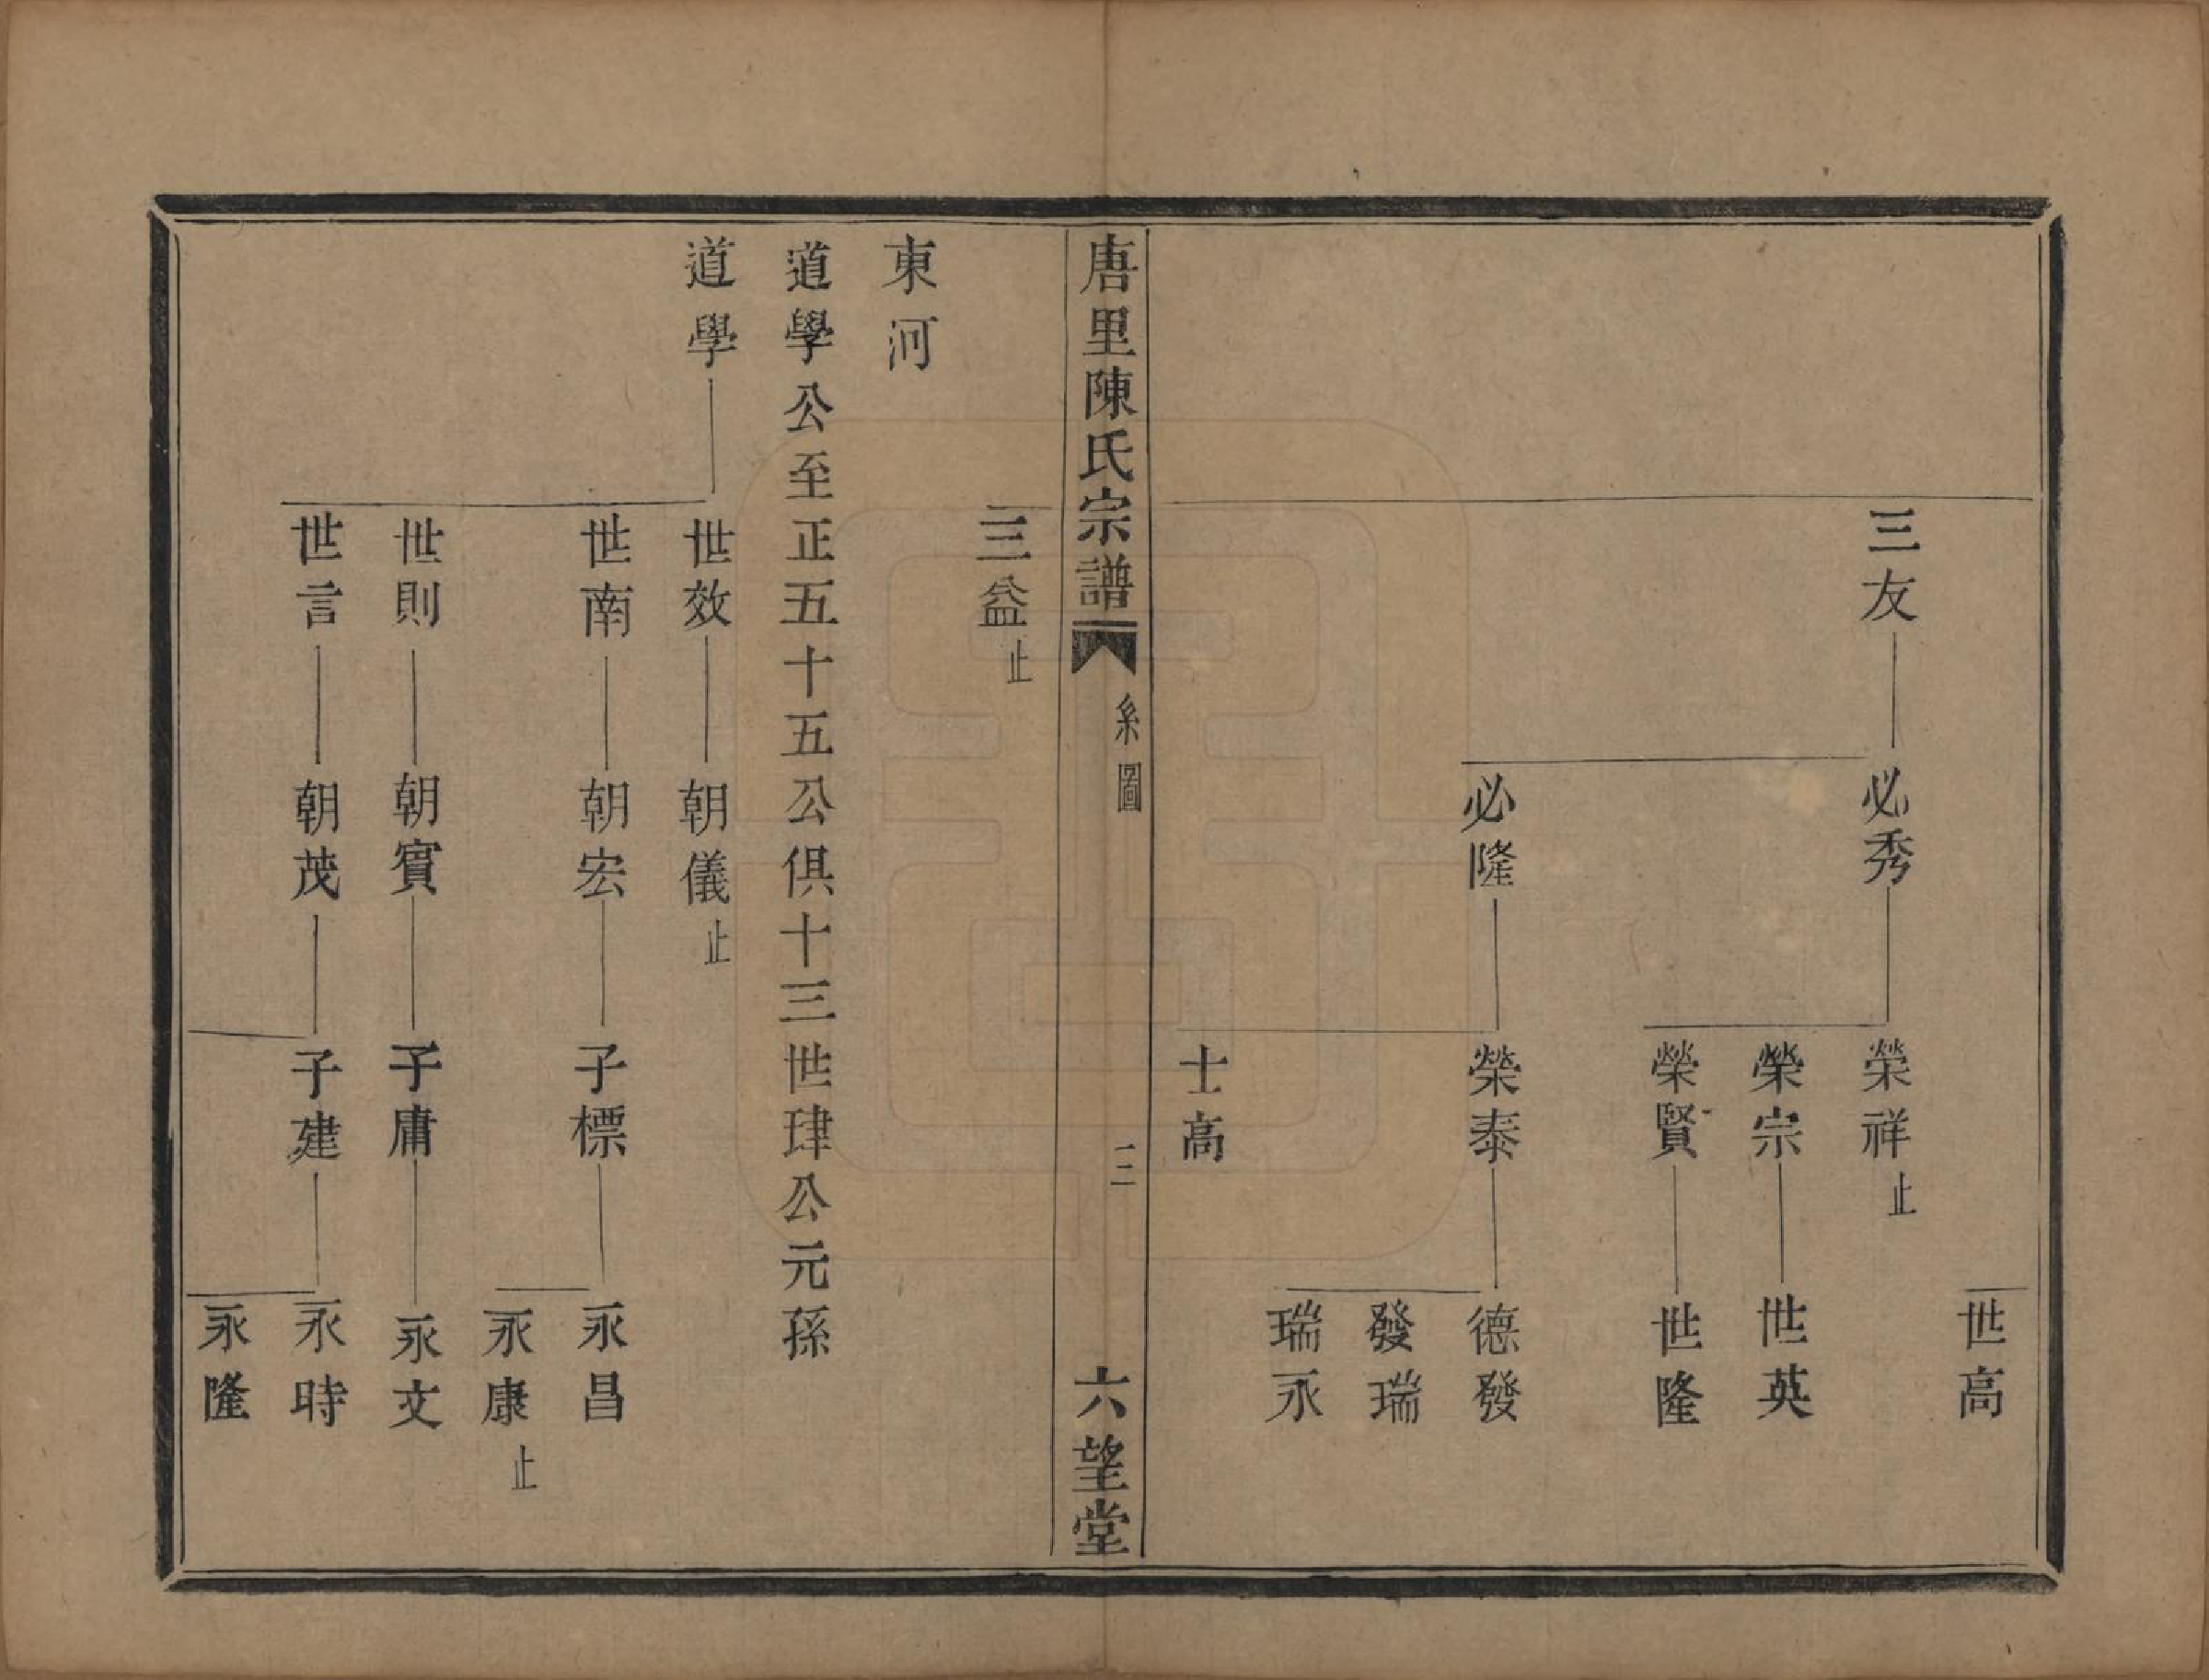 世高
三友 必秀 榮祥止
榮宗 世英
榮賢 世隆
必隆 榮泰 德發
發瑞
瑞永
士高
唐里陳氏宗譜 系圖 三 六望堂
三益止
東河
道學公至正五十五公俱十三世肆公元孫
道學 世效 朝儀止
世南 朝宏 子標 永昌
永康止
世則 朝賓 子庸 永文
世言 朝茂 子建 永時
永隆